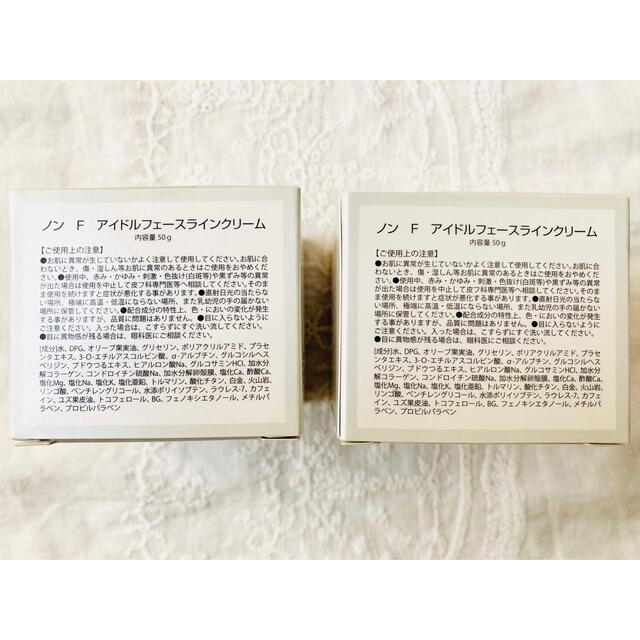 ノン F アイドルフェースラインクリーム
内容量 50g
【ご使用上の注意】
●お肌に異常が生じていないかよく注意して使用してください。お肌に合
わないとき、傷・湿しん等お肌に異常のあるときはご使用をおやめくだ
さい。●使用中、赤み・かゆみ・刺激・色抜け(白斑等)や黒ずみ等の異常
が出た場合は使用を中止して皮フ科専門医等へ相談してください。そのま
ま使用を続けますと症状が悪化する事があります。●直射日光の当たらな
い場所、極端に高温・低温にならない場所、また乳幼児の手の届かない
場所に保管してください。●配合成分の特性上、色・においの変化が発生
する事がありますが、品質に問題はありません。●目に入らないように
ご注意ください。入った場合は、こすらずにすぐ洗い流してください。
●目に異物感が残る場合は、眼科医にご相談ください。
[成分]水、DPG、オリーブ果実油、グリセリン、ポリアクリルアミド、プラセ
ンタエキス、3-O-エチルアスコルビン酸、α-アルブチン、グルコシルヘス
ペリジン、ブドウつるエキス、ヒアルロン酸Na、グルコサミンHCl、加水分
解コラーゲン、コンドロイチン硫酸Na、加水分解卵殻膜、塩化Ca、酢酸Ca、
塩化Mg、塩化Na、塩化K、塩化亜鉛、トルマリン、酸化チタン、白金、火山岩、
リンゴ酸、ペンチレングリコール、水添ポリイソブテン、ラウレス-7、カフェ
イン、ユズ果皮油、トコフェロール、BG、フェノキシエタノール、メチルパ
ラベン、プロピルパラベン
ノン F アイドルフェースラインクリーム
内容量 50g
【ご使用上の注意】
●お肌に異常が生じていないかよく注意して使用してください。お肌に合
わないとき、傷・湿しん等お肌に異常のあるときはご使用をおやめくだ
さい。●使用中、赤み・かゆみ・刺激・色抜け(白斑等)や黒ずみ等の異常
が出た場合は使用を中止して皮フ科専門医等へ相談してください。そのま
ま使用を続けますと症状が悪化する事があります。●直射日光の当たらな
い場所、極端に高温・低温にならない場所、また乳幼児の手の届かない
場所に保管してください。●配合成分の特性上、色・においの変化が発生
する事がありますが、品質に問題はありません。●目に入らないように
ご注意ください。入った場合は、こすらずにすぐ洗い流してください。
●目に異物感が残る場合は、眼科医にご相談ください。
[成分]水、DPG、オリーブ果実油、グリセリン、ポリアクリルアミド、プラセ
ンタエキス、3-O-エチルアスコルビン酸、α-アルブチン、グルコシルヘス
ペリジン、ブドウつるエキス、ヒアルロン酸Na、グルコサミンHCl、加水分
解コラーゲン、コンドロイチン硫酸Na、加水分解卵殻膜、塩化Ca、酢酸Ca、
塩化Mg、塩化Na、塩化K、塩化亜鉛、トルマリン、酸化チタン、白金、火山岩、
リンゴ酸、ペンチレングリコール、水添ポリイソブテン、ラウレス-7、カフェ
イン、ユズ果皮油、トコフェロール、BG、フェノキシエタノール、メチルパ
ラベン、プロピルパラベン